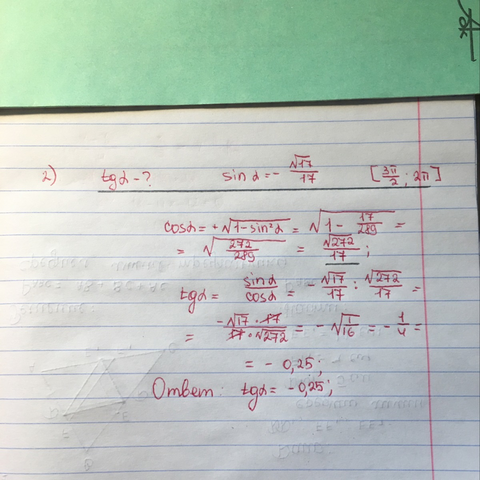 2) tgα - ? sin α = - √17/17 [3π/2 ; 2π]
cosα = +√(1-sin²α) = √(1 - 17/289) =
= √(272/289) = √272/17 ;
tgα = sinα/cosα = - √17/17 : √272/17 =
= -√17 · 17/17 · √272 = - √(1/16) = - 1/4 =
= - 0,25 ;
Ответ: tgα = - 0,25 ;